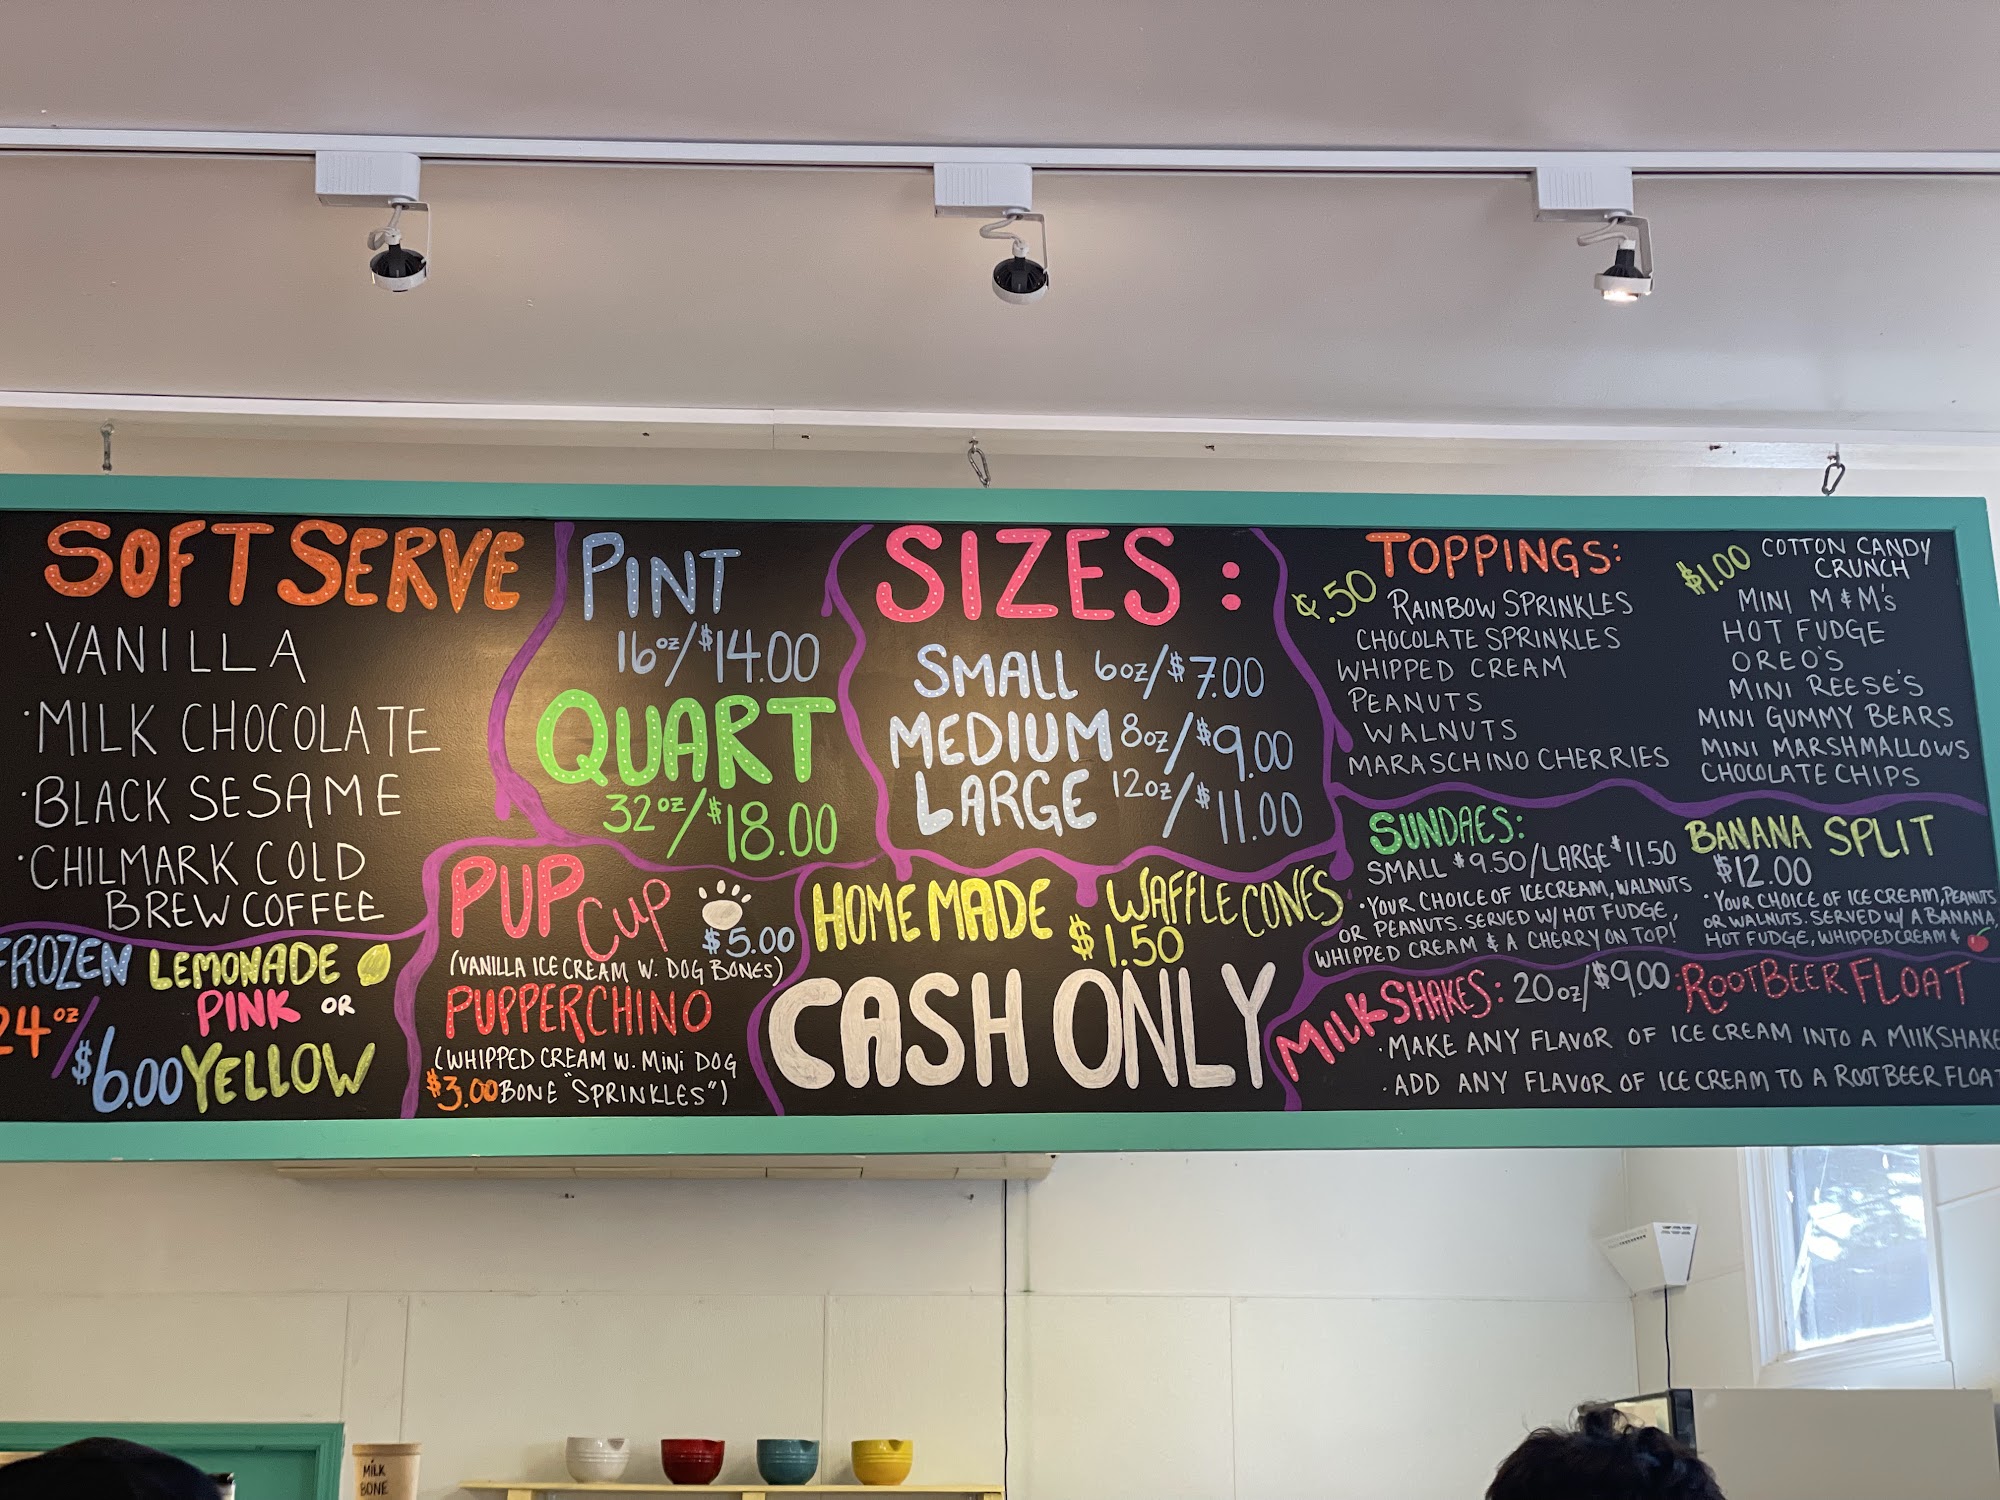 SOFT SERVE
·VANILLA
·MILK CHOCOLATE
·BLACK SESAME
·CHILMARK COLD
BREW COFFEE
FROZEN LEMONADE
PINK OR
YELLOW
24oz/$6.00
PINT
16oz/$14.00
QUART
32oz/$18.00
PUP CUP
$5.00
(VANILLA ICE CREAM W. DOG BONES)
PUPPERCHINO
(WHIPPED CREAM W. MINI DOG
$3.00 BONE "SPRINKLES")
SIZES:
SMALL 6oz/$7.00
MEDIUM 8oz/$9.00
LARGE 12oz/$11.00
HOMEMADE WAFFLE CONES
$1.50
CASH ONLY
TOPPINGS:
.50 RAINBOW SPRINKLES
CHOCOLATE SPRINKLES
WHIPPED CREAM
PEANUTS
WALNUTS
MARASCHINO CHERRIES
$1.00 COTTON CANDY
CRUNCH
MINI M&M's
HOT FUDGE
OREO'S
MINI REESE'S
MINI GUMMY BEARS
MINI MARSHMALLOWS
CHOCOLATE CHIPS
SUNDAES:
SMALL $9.50/LARGE $11.50
·YOUR CHOICE OF ICE CREAM, WALNUTS
OR PEANUTS. SERVED W/ HOT FUDGE,
WHIPPED CREAM & A CHERRY ON TOP!
BANANA SPLIT
$12.00
·YOUR CHOICE OF ICE CREAM, PEANUTS
OR WALNUTS. SERVED W/ A BANANA,
HOT FUDGE, WHIPPED CREAM &
MILKSHAKES: 20oz/$9.00: ROOTBEER FLOAT
·MAKE ANY FLAVOR OF ICE CREAM INTO A MILKSHAKE
·ADD ANY FLAVOR OF ICE CREAM TO A ROOTBEER FLOAT
MILK
BONE